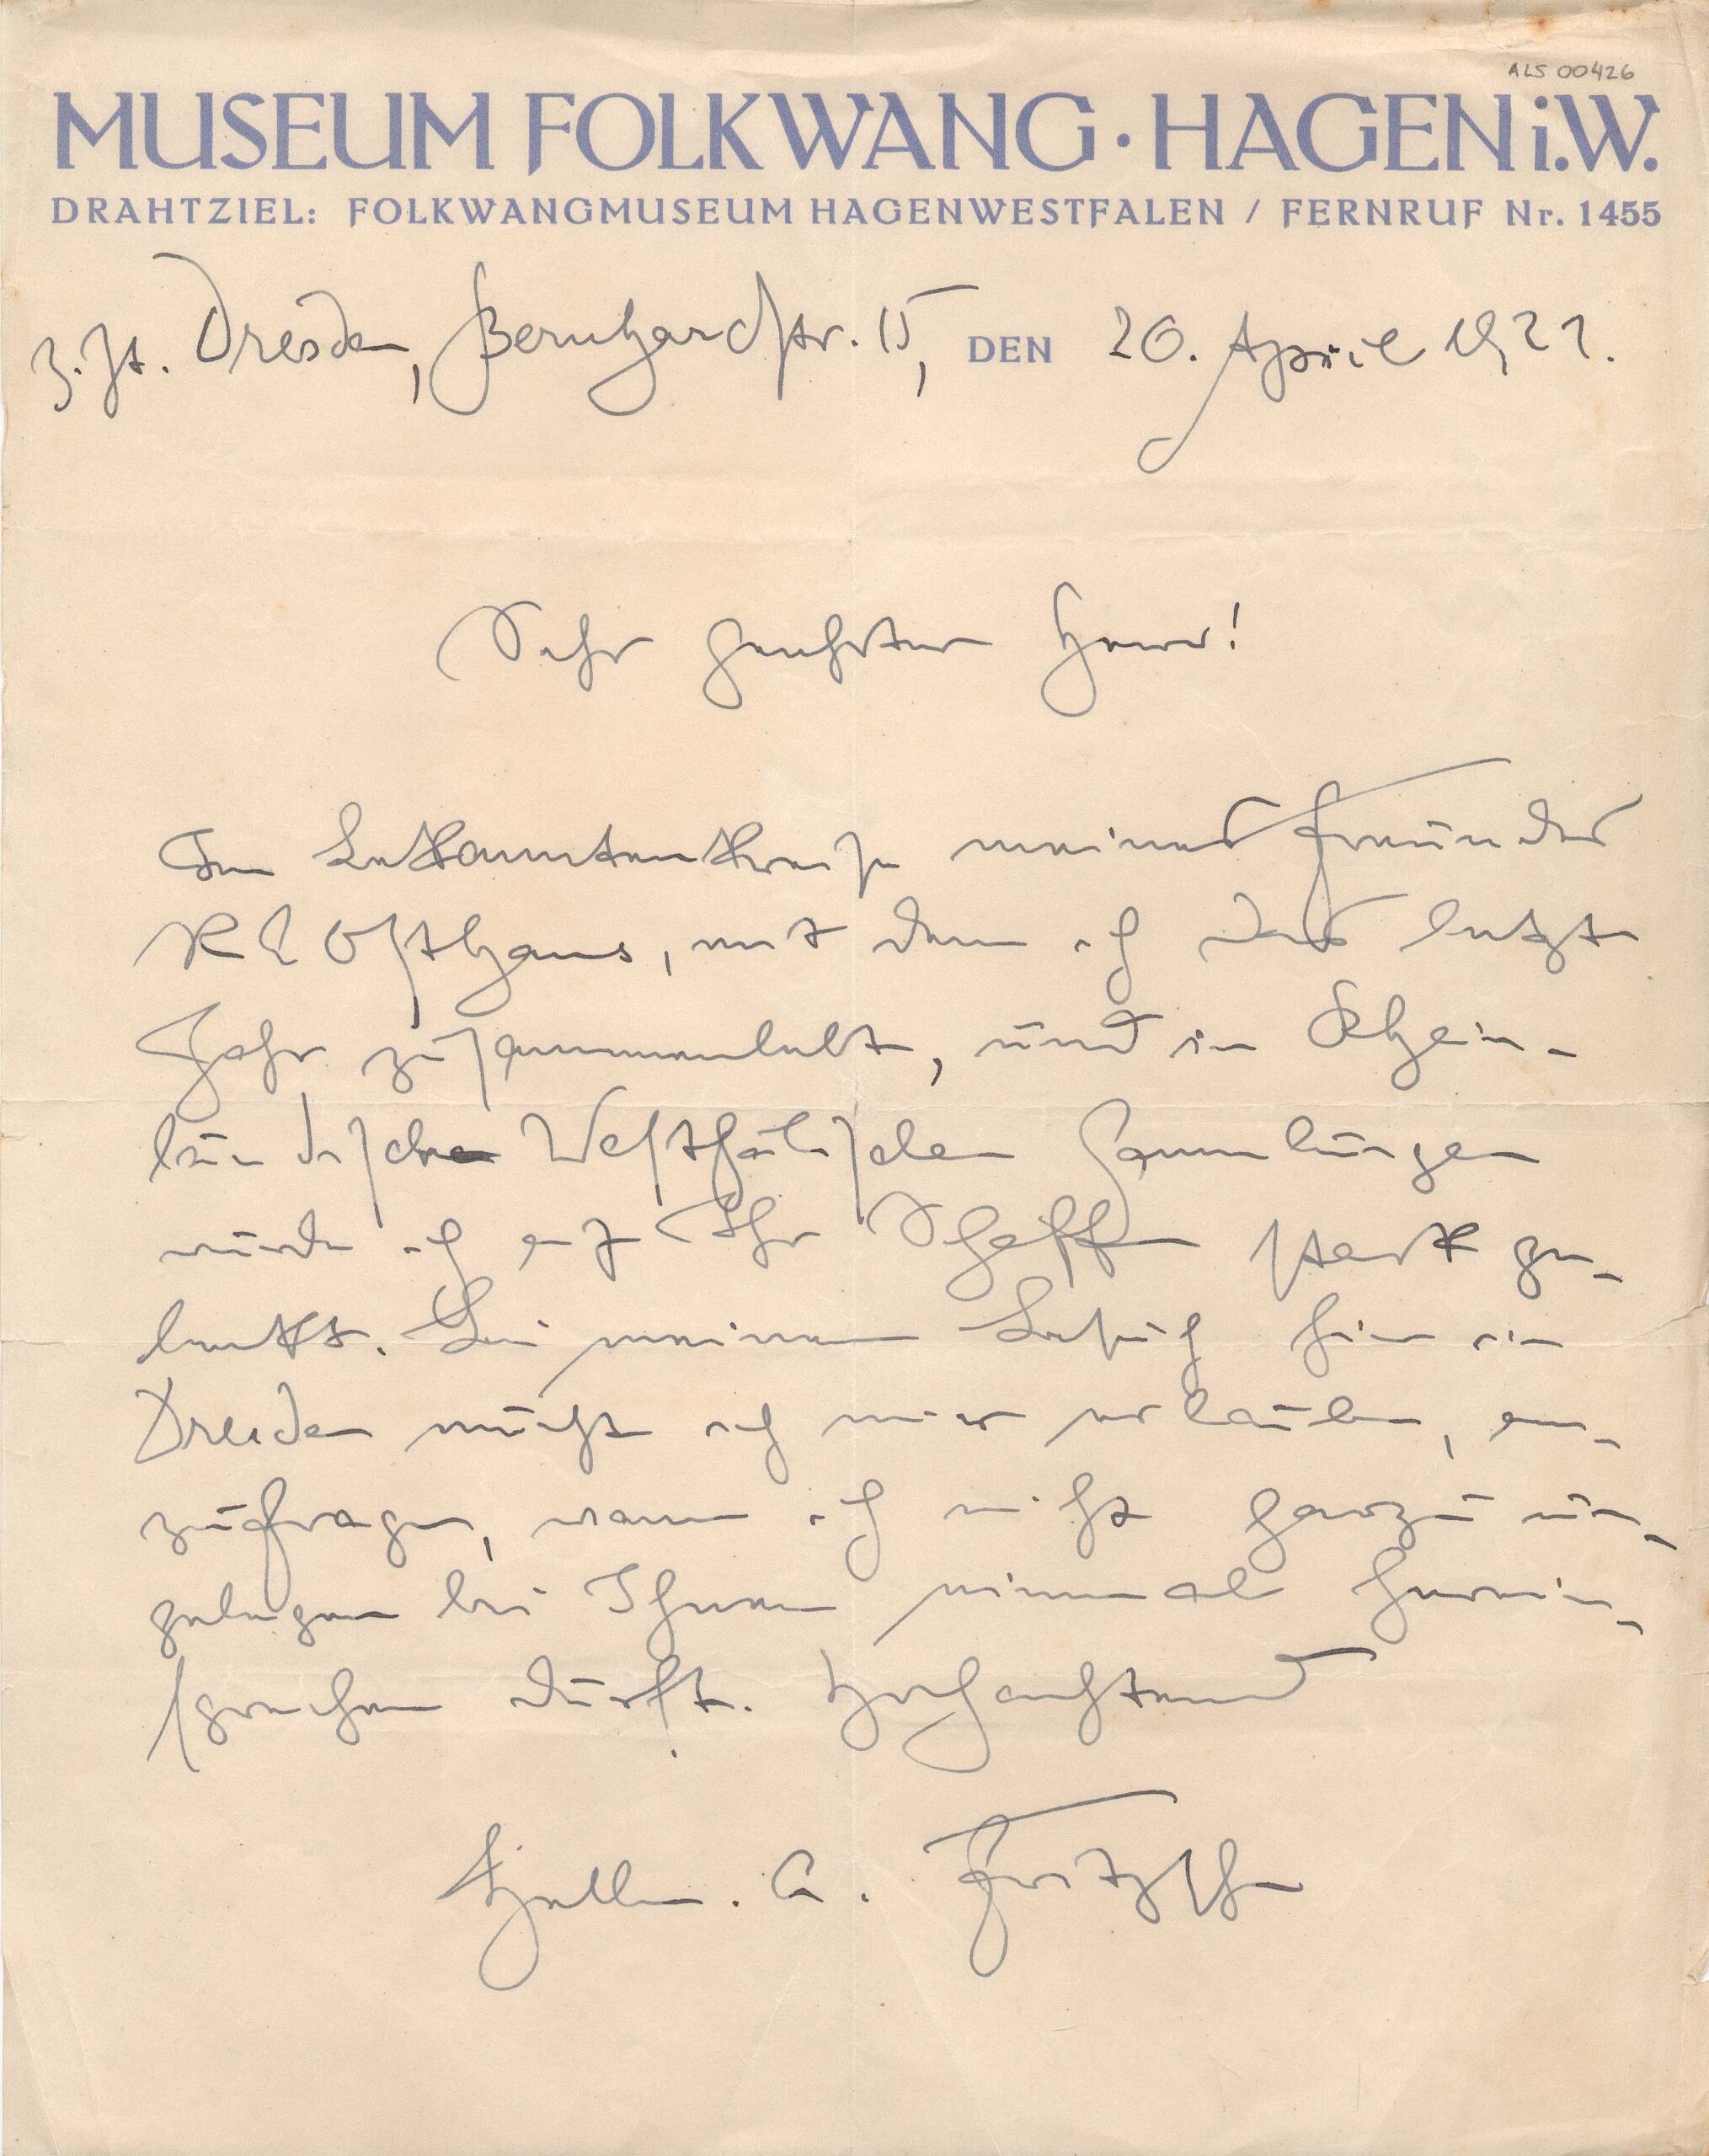 ALS 00426
MUSEUM FOLKWANG · HAGEN i.W.
DRAHTZIEL: FOLKWANGMUSEUM HAGENWESTFALEN / FERNRUF Nr. 1455
z. Zt. Dresden, Bernhardstr. 15, DEN 20. April 1921.
Sehr geehrter Herr!
Im Bekanntenkreise meines Freundes
K E Osthaus, mit dem ich das letzte
Jahr zusammenlebte, und in Rhein-
ländisch Westfälischen Sammlungen
wurde ich auf Ihr Schaffen stark ge-
lenkt. Bei meinem Besuch hier in
Dresden möchte ich mir erlauben, an-
zufragen, wann ich nicht garzu un-
gelegen bei Ihnen einmal herein-
sprechen dürfte. Hochachtend
Hellm. A. Fritzsche